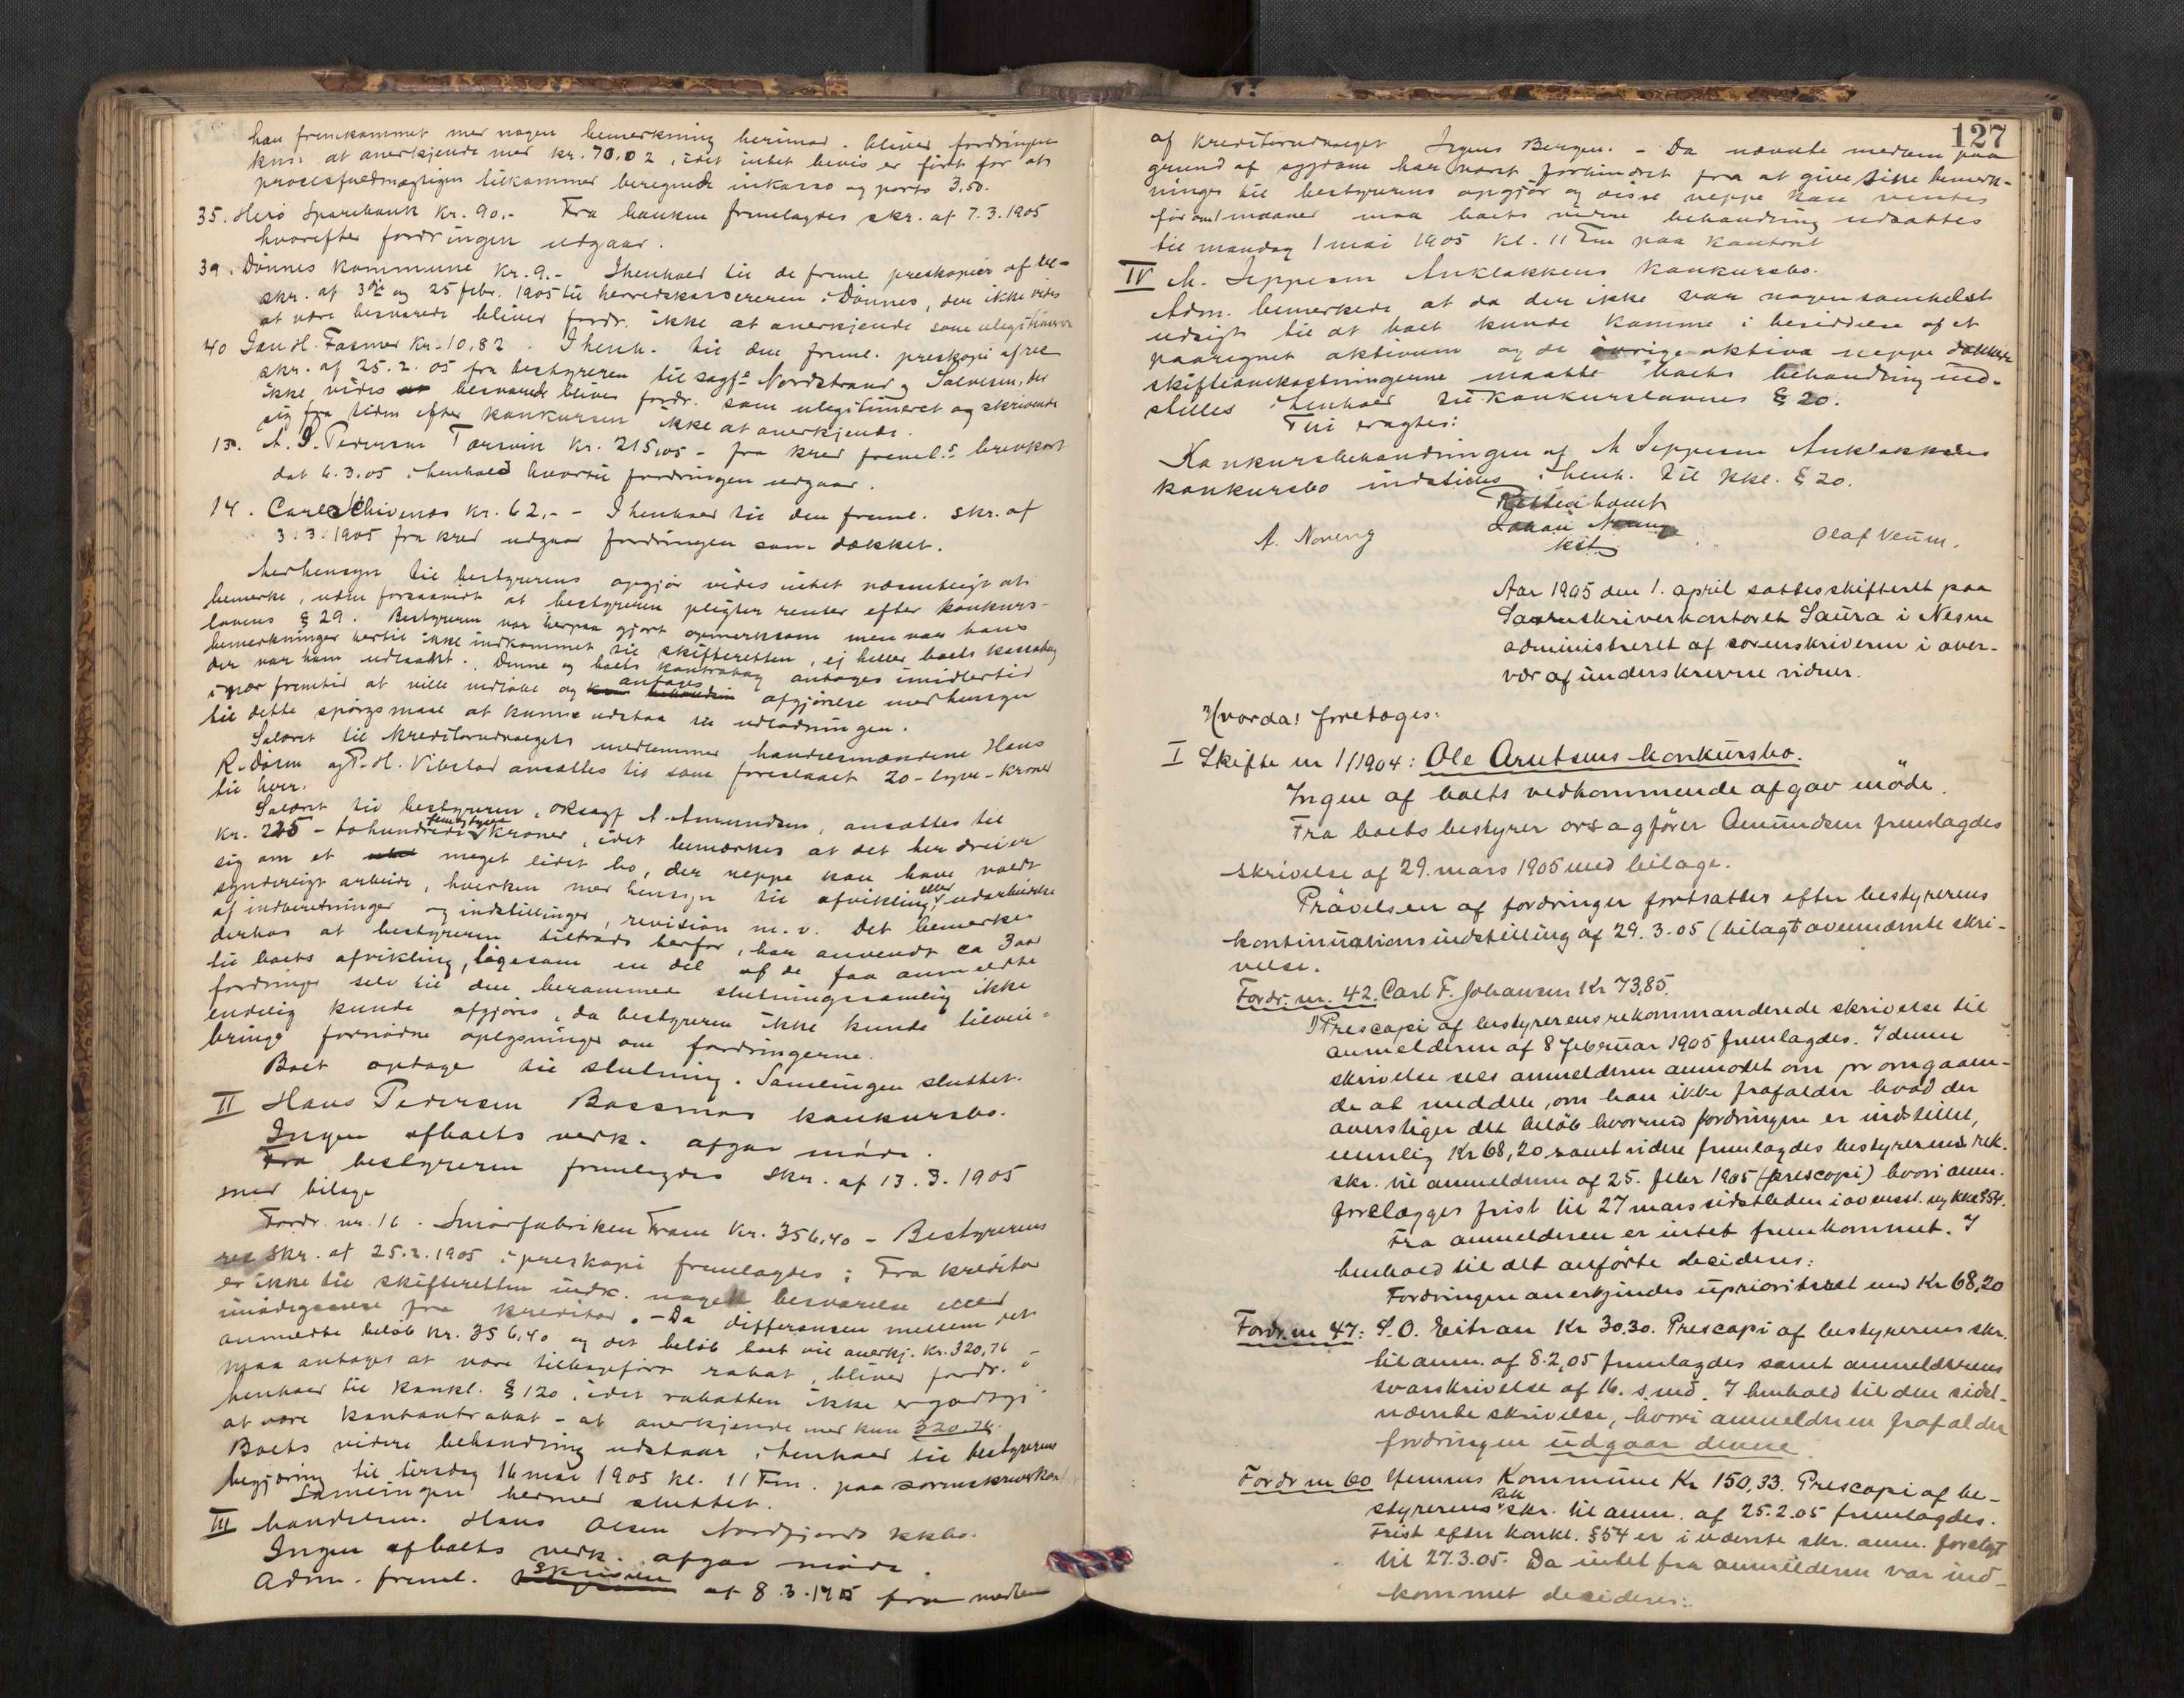 han fremkommet med nogen bemerkning herimod. bliver fordringen
kun at anerkjende med kr. 70,02, idet intet bevis er ført for at
procesfuldmægtigen tilkommer beregnede inkasso og porto 3,50.
35. Herø Sparebank Kr. 90.- Fra banken fremlagdes skr. af 7.3.1905
hvorefter fordringen udgaar.
39. Dønnes kommune Kr. 9.- I henhold til de freml. preskopier af
skr. af og 25 febr. 1905 til herredskassereren i Dønnes, der ikke vides
at være besvarede bliver fordr. ikke at anerkjende som ulegitimeret
40 Jan H. Fasmer Kr. 10,82. I henh. til den freml. preskopi af rec
skr. af 25.2.05 fra bestyreren til sagf. Nordstrand og Salvesen, der
ikke vides besvaret bliver fordr. som ulegitimeret og skrivende
sig fra tiden efter konkursen ikke at anerkjende.
13. A. J. Pedersen Torsvik Kr. 215,05 - fra kred freml. brevkort
dat 6.3.05 i henhold hvortil fordringen udgaar.
14. Carl Schivenes Kr. 62.- - I henhold til den freml. skr. af
3.3.1905 fra kred udgaar fordringen som dækket.
Med hensyn til bestyrerens opgjør vides intet væsentligt at
bemerke, uden forsaavidt at bestyreren pligter renter efter konkurs-
lovens § 29. Bestyreren var herpaa gjort opmerksom men var hans
bemerkninger hertil ikke indkommet til skifteretten, ej heller boets kassabog
der var ham udlaant. Denne og boets kontrabog antages imidlertid
i nær fremtid at ville indløbe og antages afgjørelse med hensyn
til dette spørgsmaal at kunne udstaa til udlodningen.
Salæret til kreditorudvalgets medlemmer handelsmændene Hans
R. Døsen og P. H. Vibstad ansættes til som foreslaaet 20 - tyve - kroner
til hver.
Salæret til bestyreren, orsagf A. Amundsen, ansættes til
Kr. 225 - tohundrede femogtyve kroner, idet bemærkes at det her dreier
sig om et meget lidet bo, der neppe kan have voldt
synderligt arbeide, hverken med hensyn til afvikling eller udarbeidelse
af indberetninger og indstillinger, revision m.v. Det bemerkes
derhos at bestyreren tiltrods herfor, har anvendt ca 3 aar
til boets afvikling, ligesom en del af de faa anmeldte
fordringer selv til den berammede slutningssamling ikke
endelig kunde afgjøres, da bestyreren ikke kunde tilveie-
bringe fornødne oplysninger om fordringerne.
Boet optages til slutning. Samlingen sluttet.
II Hans Pedersen Bassmos konkursbo.
Ingen af boets vedk. afgav møde.
Fra bestyreren fremlagdes skr. af 13.3.1905
med bilage
Fordr. nr. 16. Smørfabriken Fram Kr. 356,40 - Bestyrerens
rec skr. af 25.2.1905 i preskopi fremlagdes; Fra kreditor
er ikke til skifteretten indk. nogen besvarelse eller
imødegaaelse fra kreditor. - Da differansen mellem det
anmeldte beløb Kr. 356,40 og det beløb boet vil anerkj. Kr. 320,76
maa antages at være tilbageført rabat, bliver fordr. i
henhold til konkl. § 120, idet rabatten ikke er godtgj
at være kontantrabat - at anerkjende med kun 320,76.
Boets videre behandling udstaar i henhold til bestyrerens
begjæring til tirsdag 16 mai 1905 kl. 11 Fm. paa sorenskriverkont
Samlingen hermed sluttet.
III handelsm. Hans Olsen Nordfjords kkbo.
Ingen af boets vedk. afgav møde.
Adm. freml. Skrivelse af 8.3.1905 fra medlem
127
af kreditorudvalget Bergen. - Da nævnte medlem paa
grund af sygdom har været forhindret fra at give sine bemerk-
ninger til bestyrerens opgjør og disse neppe kan ventes
før om 1 maaned maa boets videre behandling udsættes
til mandag 1 mai 1905 kl. 11 Fm paa kontoret
IV M. Jeppesen Anklakkens konkursbo.
Adm. bemerkede at da der ikke var nogensomhelst
udsigt til at boet kunde komme i besiddelse af et
paaregnet aktivum og de øvrige aktiva neppe dækker
skifteomkostningerne maatte boets behandling ind-
stilles i henhold til konkurslovens § 20.
Thi eragtes:
Konkursbehandlingen af M Jeppesen Anklakkens
konkursbo indstilles i henh. til kkl. § 20.
Retten hævet
kst
A. Noreng
Olaf Veum.
Aar 1905 den 1. april sattes skifteret paa
Sorenskriverkontoret Saura i Nesna
administreret af sorenskriveren i over-
vær af underskrevne vidner.
Hvorda! foretoges:
I Skifte nr 1/1904: Ole Arntsens konkursbo.
Ingen af boets vedkommende afgav møde.
Fra boets bestyrer orsagfører Amundsen fremlagdes
skrivelse af 29. mars 1905 med bilage.
Prøvelsen af fordringer fortsattes efter bestyrerens
kontinuationsindstilling af 29.3.05 (bilagt ovennævnte skri-
velse.
Fordr. nr. 42. Carl F. Johansen Kr 73,85.
Prescopi af bestyrerens rekommanderede skrivelse til
anmelderen af 8 februar 1905 fremlagdes. I denne
skrivelse sees anmelderen anmodet om pr omgaaen-
de at meddele, om han ikke frafalder hvad der
overstiger det beløb hvormed fordringen er indstillet,
nemlig Kr 68,20 samt videre fremlagdes bestyrerens rek.
skr. til anmelderen af 25. febr 1905 (prescopi) hvori anm.
forelægges frist til 27 mars sidstleden i ovensst. kkl § 54.
Fra anmelderen er intet fremkommet. I
henhold til det anførte decideres:
Fordringen anerkjendes uprioriteret med Kr 68,20
Fordr. nr 47: S. O. Eitran Kr 30.30. Prescopi af bestyrerens skr.
til anm. af 8.2,05 fremlagdes samt anmelderens
svarskrivelse af 16. s. md. I henhold til den sidst-
nævnte skrivelse, hvori anmelderen frafalder
fordringen udgaar denne
Fordr nr 60 Hemnes Kommune Kr 150,33. Prescopi af be-
styrerens rek skr. til anm. af 25.2.05 fremlagdes.
Frist efter konkl. § 54 er i nævnte skr. anm. forelagt
til 27.3.05. Da intet fra anmelderen var ind-
kommet decideres: